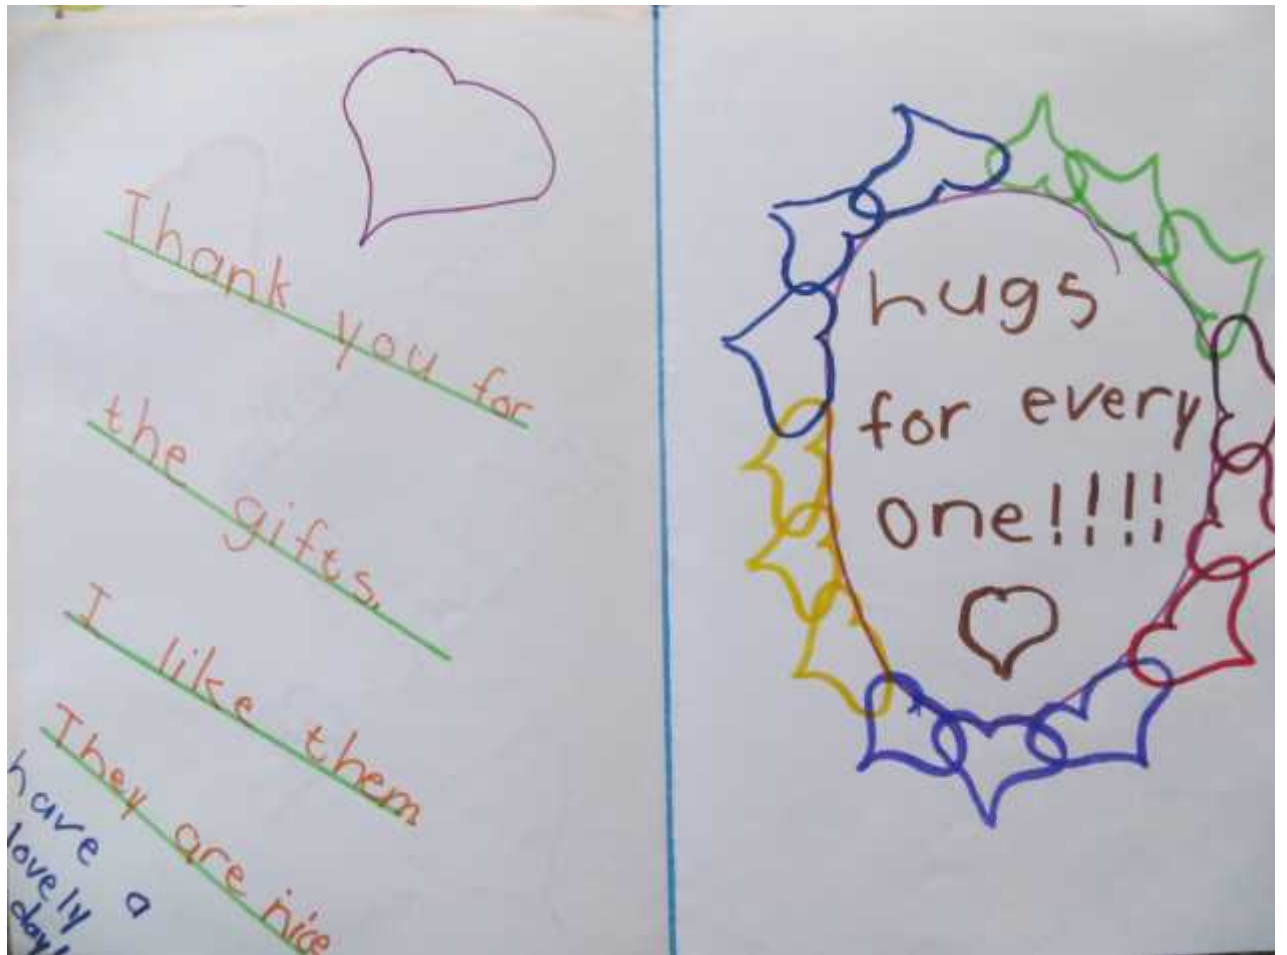 Thank you for
the gifts.
I like them
They are nice
have a
lovely
day!
hugs
for every
one!!!!